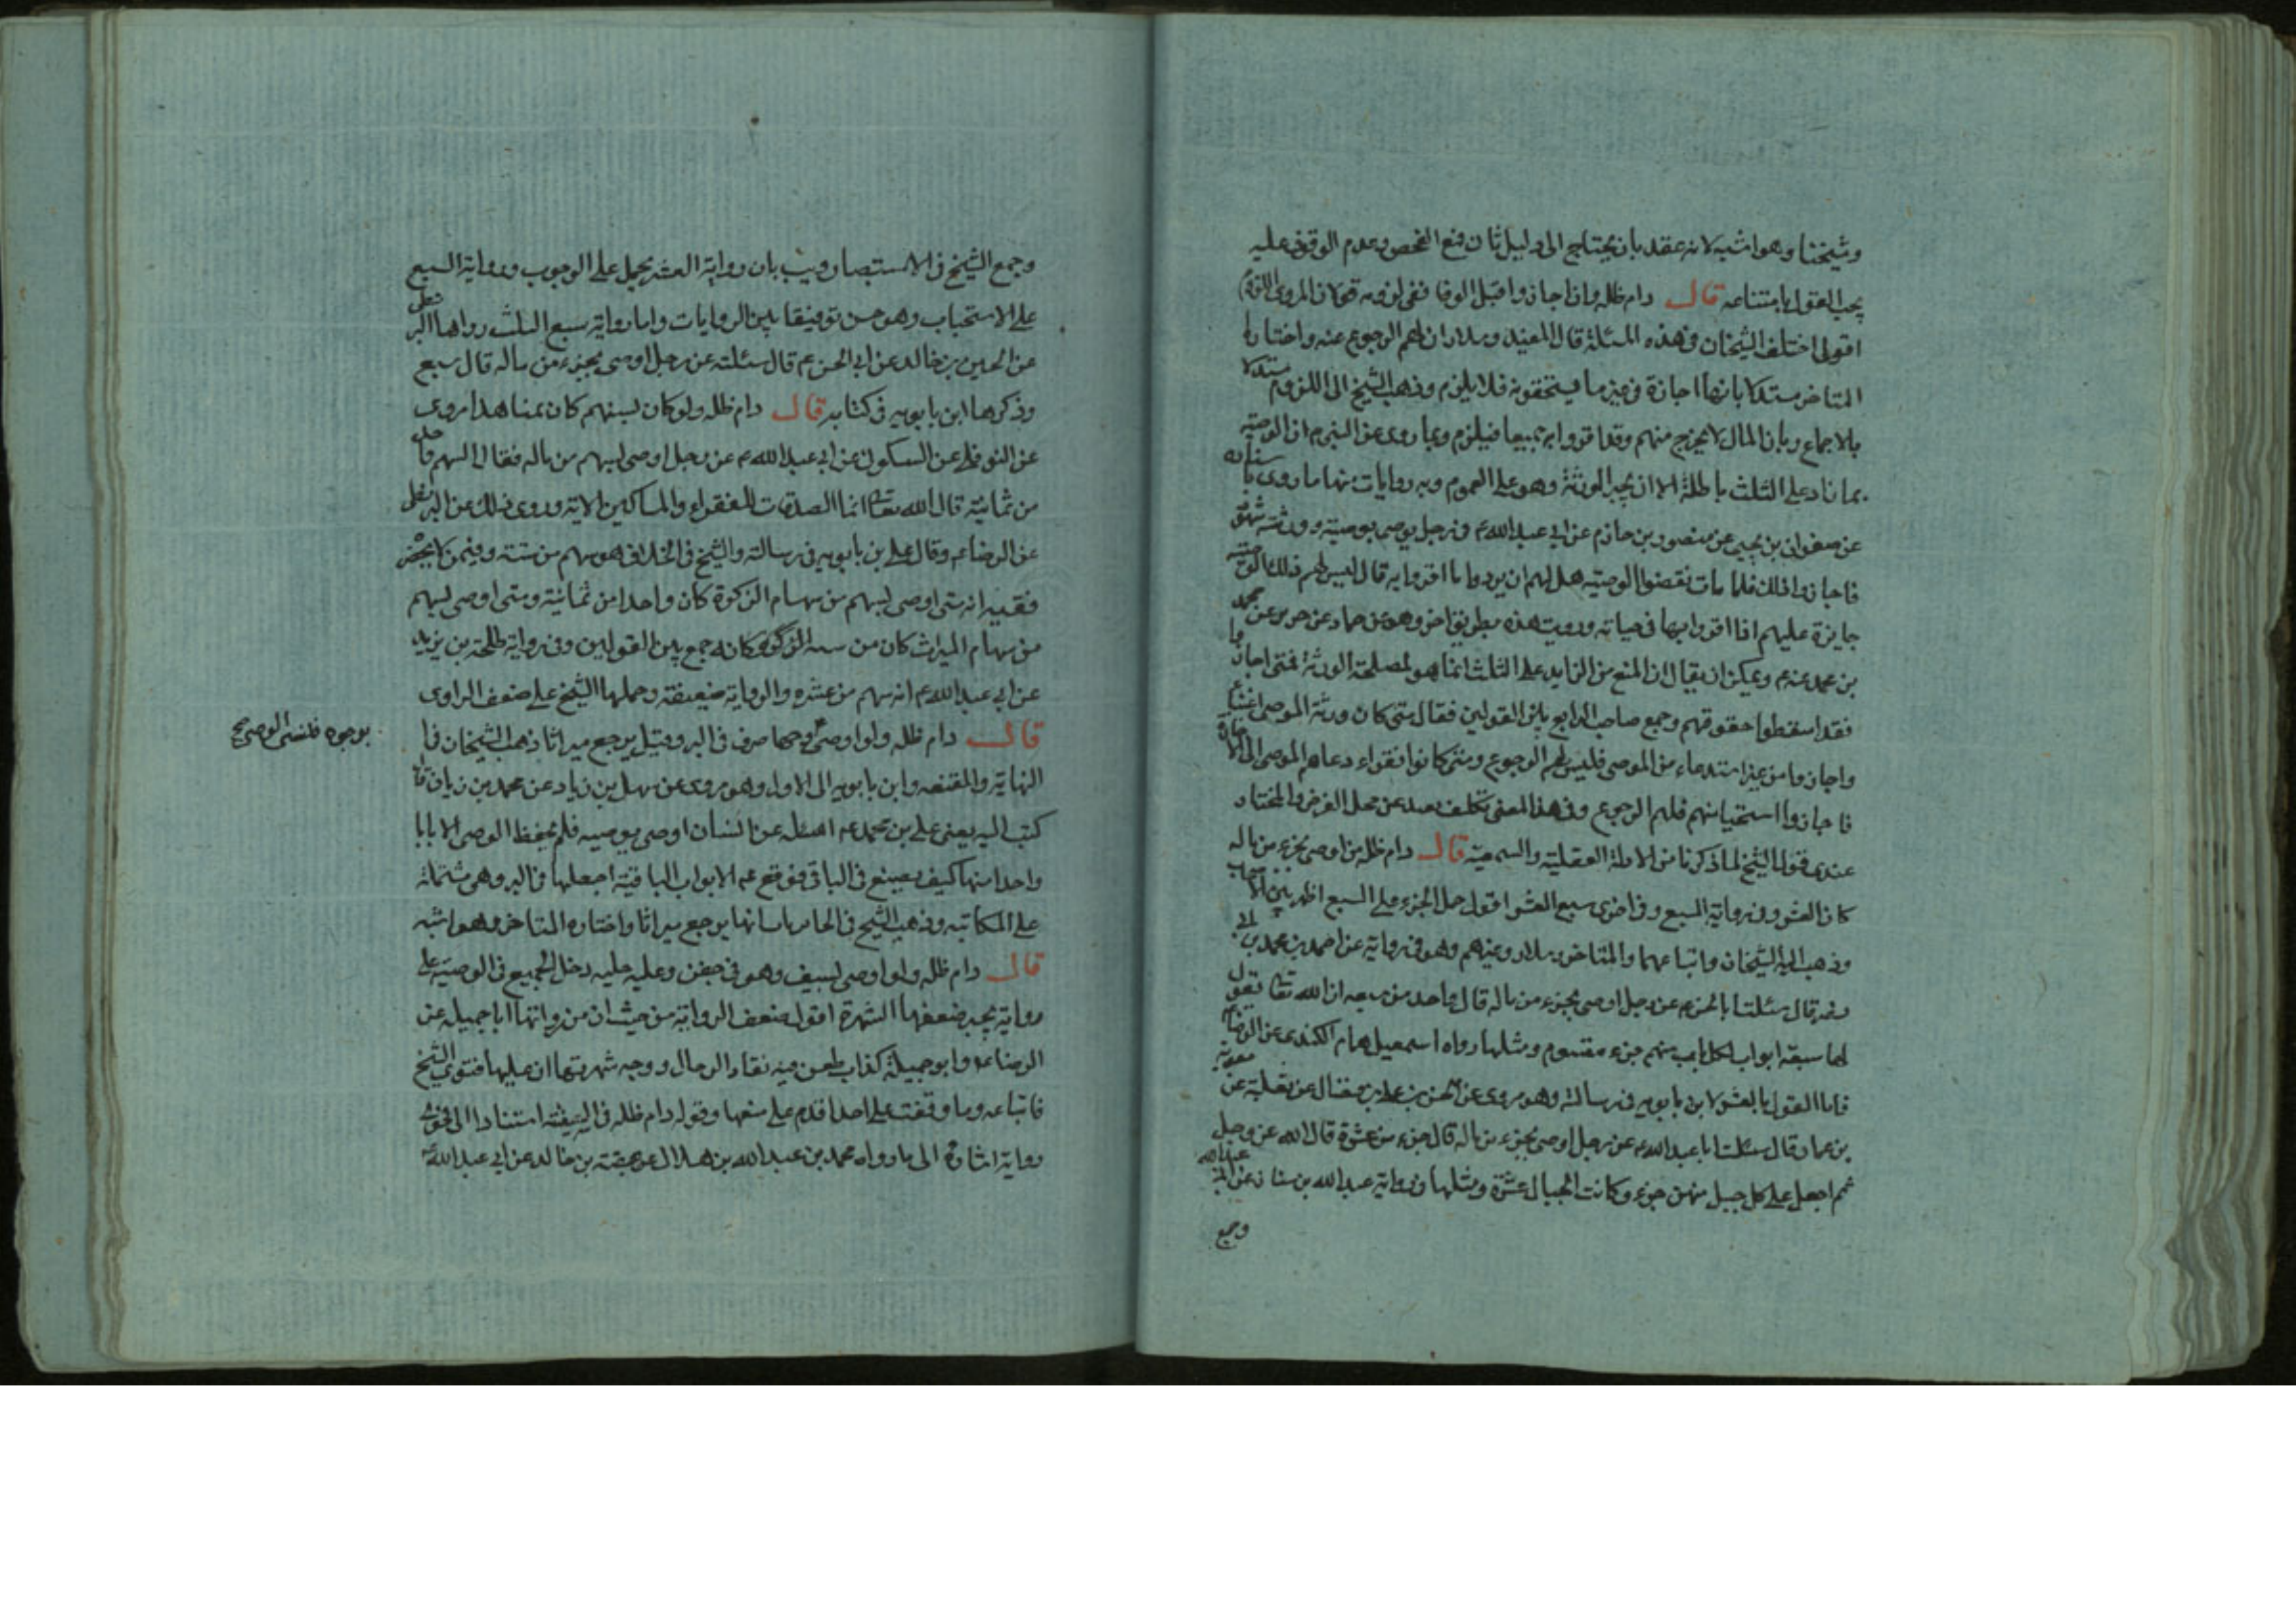 وشيخنا وهو اشبه لانه عقد بان يحتاج الى دليل ثان فمع الفحص وعدم الوقوف عليه
يجب القول بامتناعه قال دام ظله وان اجازوا قبل الوفاة ففي لزومه قولان المروي اللزوم
اقول اختلف الشيخان في هذه المسئلة قال المفيد وسلار ان لهم الرجوع عنه واختاره
المتاخر مستدلا بانها اجازة في غير ما يستحقونه فلا يلزم وذهب الشيخ الى اللزوم مستدلا
بالاجماع وبان المال لا يخرج منهم وقد اقروا به جميعا فيلزم وبما روى عن النبي م ان الوصية
بما زاد على الثلث باطلة الا ان يجيز الورثة وهو على العموم وبه روايات منها ما روى
عن صفوان بن يحيى عن منصور بن حازم عن ابي عبد الله ع في رجل يوصى بوصية وورثته شهود
فاجازوا ذلك فلما مات نقضوا الوصية هل لهم ان يردوا ما اقروا به قال ليس لهم ذلك الوصية
جايزة عليهم اذا اقروا بها في حياته ورويت هذه بطريق اخر وهو عن حماد عن حريز عن محمد
بن محمد عنه ع ويمكن ان يقال ان المنع من الزايد على الثلث انما هو لمصلحة الورثة فمتى اجازوا
فقد اسقطوا حقوقهم وجمع صاحب الرابع بين القولين فقال متى كان ورثة الموصى اغنياء
واجازوا من غير استدعاء من الموصى فليس لهم الرجوع ومتى كانوا فقراء دعاهم الموصى الى الاجازة
فاجازوا استحياء منهم فلهم الرجوع وفي هذا المعنى تكلف بعيد عن محل الغرض والمختار
عندى قول الشيخ لما ذكرنا من الادلة العقلية والسمعية قال دام ظله من اوصى بجزء من ماله
كان العشر وفي رواية السبع وفي اخرى سبع العشر اقول حمل الجزء على السبع اظهر بين الاصحاب
وذهب اليه الشيخان واتباعهما والمتاخر وسلار وغيرهم وهو في رواية عن احمد بن محمد بن ابي
نصر قال سئلت ابا الحسن ع عن رجل اوصى بجزء من ماله قال واحد من سبعه ان الله تعالى يقول
لها سبعة ابواب لكل باب منهم جزء مقسوم ومثلها رواه اسمعيل همام الكندى عن الرضا ع
فاما القول بالعشر لابن بابويه في رسالته وهو مروى عن الحسن بن على بن فضال عن ثعلبة عن معوية
بن عمار قال سئلت ابا عبد الله ع عن رجل اوصى بجزء من ماله قال جزء من عشرة قال الله عز وجل
ثم اجعل على كل جبل منهن جزء وكانت الجبال عشرة ومثلها في رواية عبد الله بن سنان عن ابي عبد الله
وجمع
وجمع الشيخ في الاستبصار وبيب بان رواية العشر يحمل على الوجوب ورواية السبع
على الاستحباب وهو حسن توفيقا بين الروايات واما رواية سبع الثلث رواها البزنطى
عن الحسين بن خالد عن ابي الحسن ع قال سئلته عن رجل اوصى بجزء من ماله قال سبع
وذكرها ابن بابويه في كتابه قال دام ظله ولو كان بسهم كان ثمنا هذا مروى
عن النوفلى عن السكوني عن ابي عبد الله ع عن رجل اوصى بسهم من ماله فقال السهم واحد
من ثمانية قال الله تعالى انما الصدقات للفقراء والمساكين الاية وروى ذلك عن البزنطى
عن الرضا ع وقال على بن بابويه في رسالته والشيخ في الخلاف هو سهم من ستة وفيمن لا يحضر
فقيه انه متى اوصى بسهم من سهام الزكوة كان واحدا من ثمانية ومتى اوصى بسهم
من سهام الميراث كان من ستة وكانه جمع بين القولين وفي رواية طلحة بن زيد
عن ابي عبد الله ع انه سهم من عشرة والرواية ضعيفة وحملها الشيخ على ضعف الراوى
قال دام ظله ولو اوصى وجها صرف في البر وقيل يرجع ميراثا ذهب الشيخان في
بوجوه فلنسى الوصى صح
النهاية والمقنعه وابن بابويه الى الاول وهو مروى عن سهل بن زياد عن محمد بن زيان قال
كتب اليه يعنى على بن محمد ع اسئله عن انسان اوصى بوصيه فلم يحفظ الوصى الا بابا
واحدا منها كيف يصنع في الباقى فوقع ع الابواب الباقية اجعلها في البر وهى مشتملة
على المكاتبه وذهب الشيخ في الحايريات انها يرجع ميراثا واختاره المتاخر وهو اشبه
قال دام ظله ولو اوصى بسيف وهو في جفن وعليه حليه دخل الجميع في الوصية على
رواية يجبر ضعفها الشهرة اقول ضعف الرواية من حيث ان من رواتها ابا جميله عن
الرضا ع وابو جميلة كذاب طعن فيه نقاد الرجال ووجه شهرتها ان عليها فتوى الشيخ
فاتباعه وما وقفت على احد اقدم على منعها وقوله دام ظله في السفينة استنادا الى فحوى
رواية اشارة الى ما رواه محمد بن عبد الله بن هلال عن عقبة بن خالد عن ابي عبد الله ع